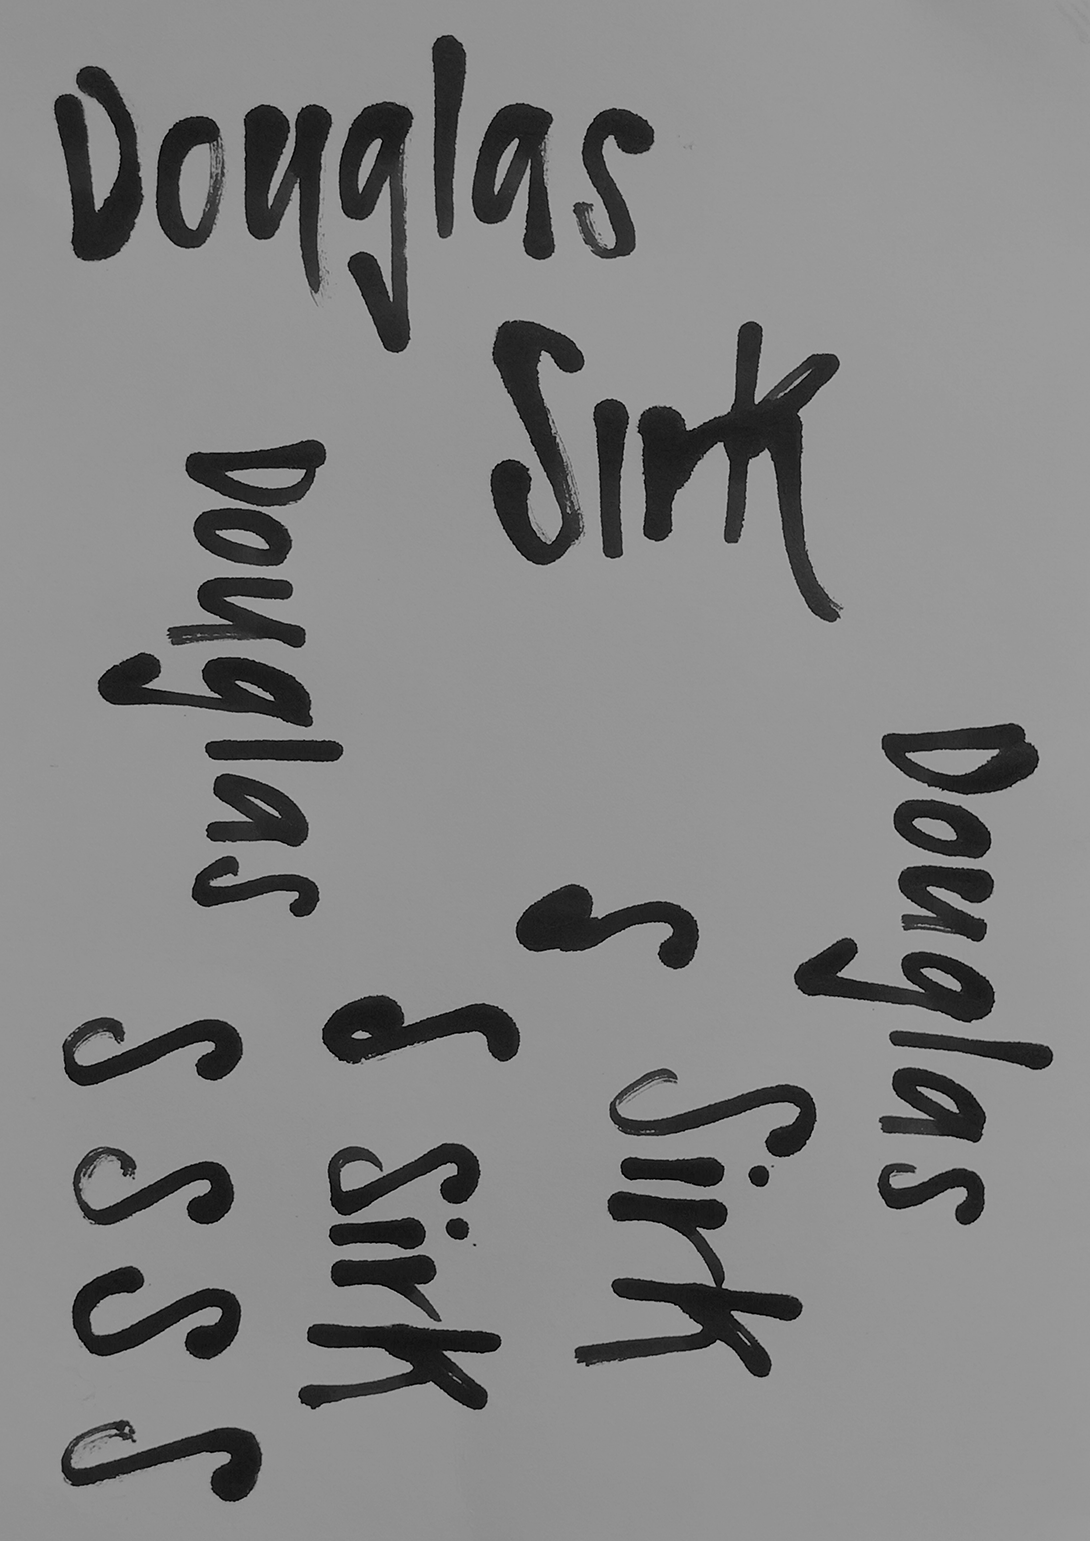 Douglas
Sirk
Douglas
Douglas
S
S
Sirk
Sirk
S
S
S
S